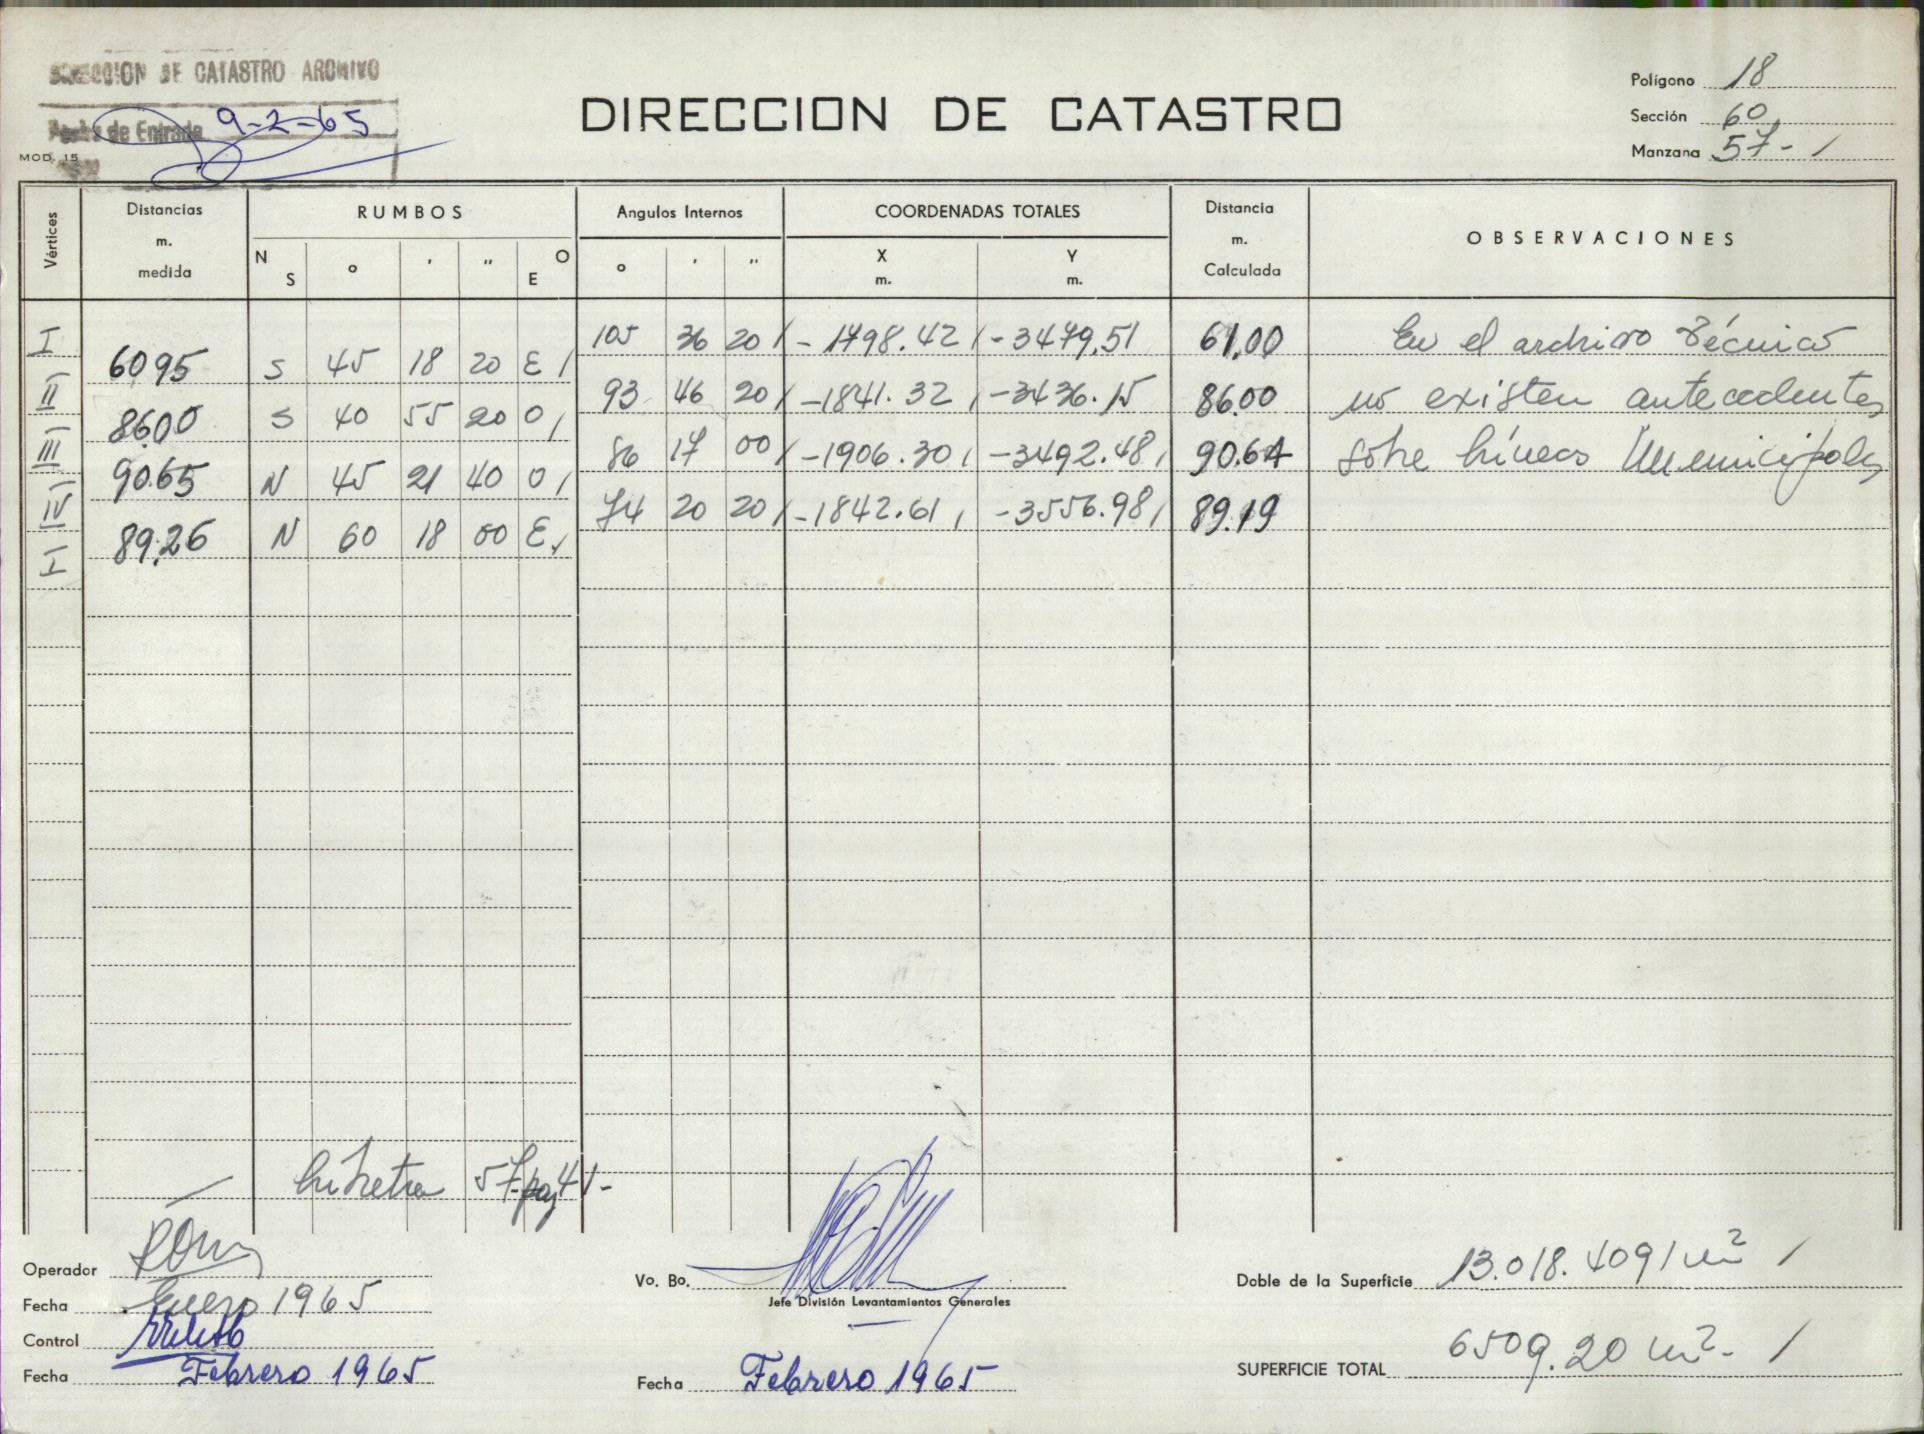 DIRECCION DE CATASTRO ARCHIVO
Fecha de Entrada 9-2-65
MOD. 15
DIRECCION DE CATASTRO
Polígono 18
Sección 60
Manzana 57-1
Vértices
Distancias m. medida
RUMBOS
N S ° ' '' E O
Angulos Internos
° ' ''
COORDENADAS TOTALES
X m. Y m.
Distancia m. Calculada
OBSERVACIONES
I 105 36 20 -1798.42 -3479.51 61.00 En el archivo Técnico
60.95 S 45 18 20 E
II 93 46 20 -1841.32 -3436.15 86.00 no existen antecedentes
86.00 S 40 55 20 O
III 86 17 00 -1906.30 -3492.48 90.64 sobre líneas Municipales
90.65 N 45 21 40 O
IV 74 20 20 -1842.61 -3556.98 89.19
89.26 N 60 18 00 E
I
Libreta 57-pag 41-
Operador
Fecha Enero 1965
Control
Fecha Febrero 1965
Vo. Bo.
Jefe División Levantamientos Generales
Fecha Febrero 1965
Doble de la Superficie 13.018.4091 m²
SUPERFICIE TOTAL 6509.20 m².